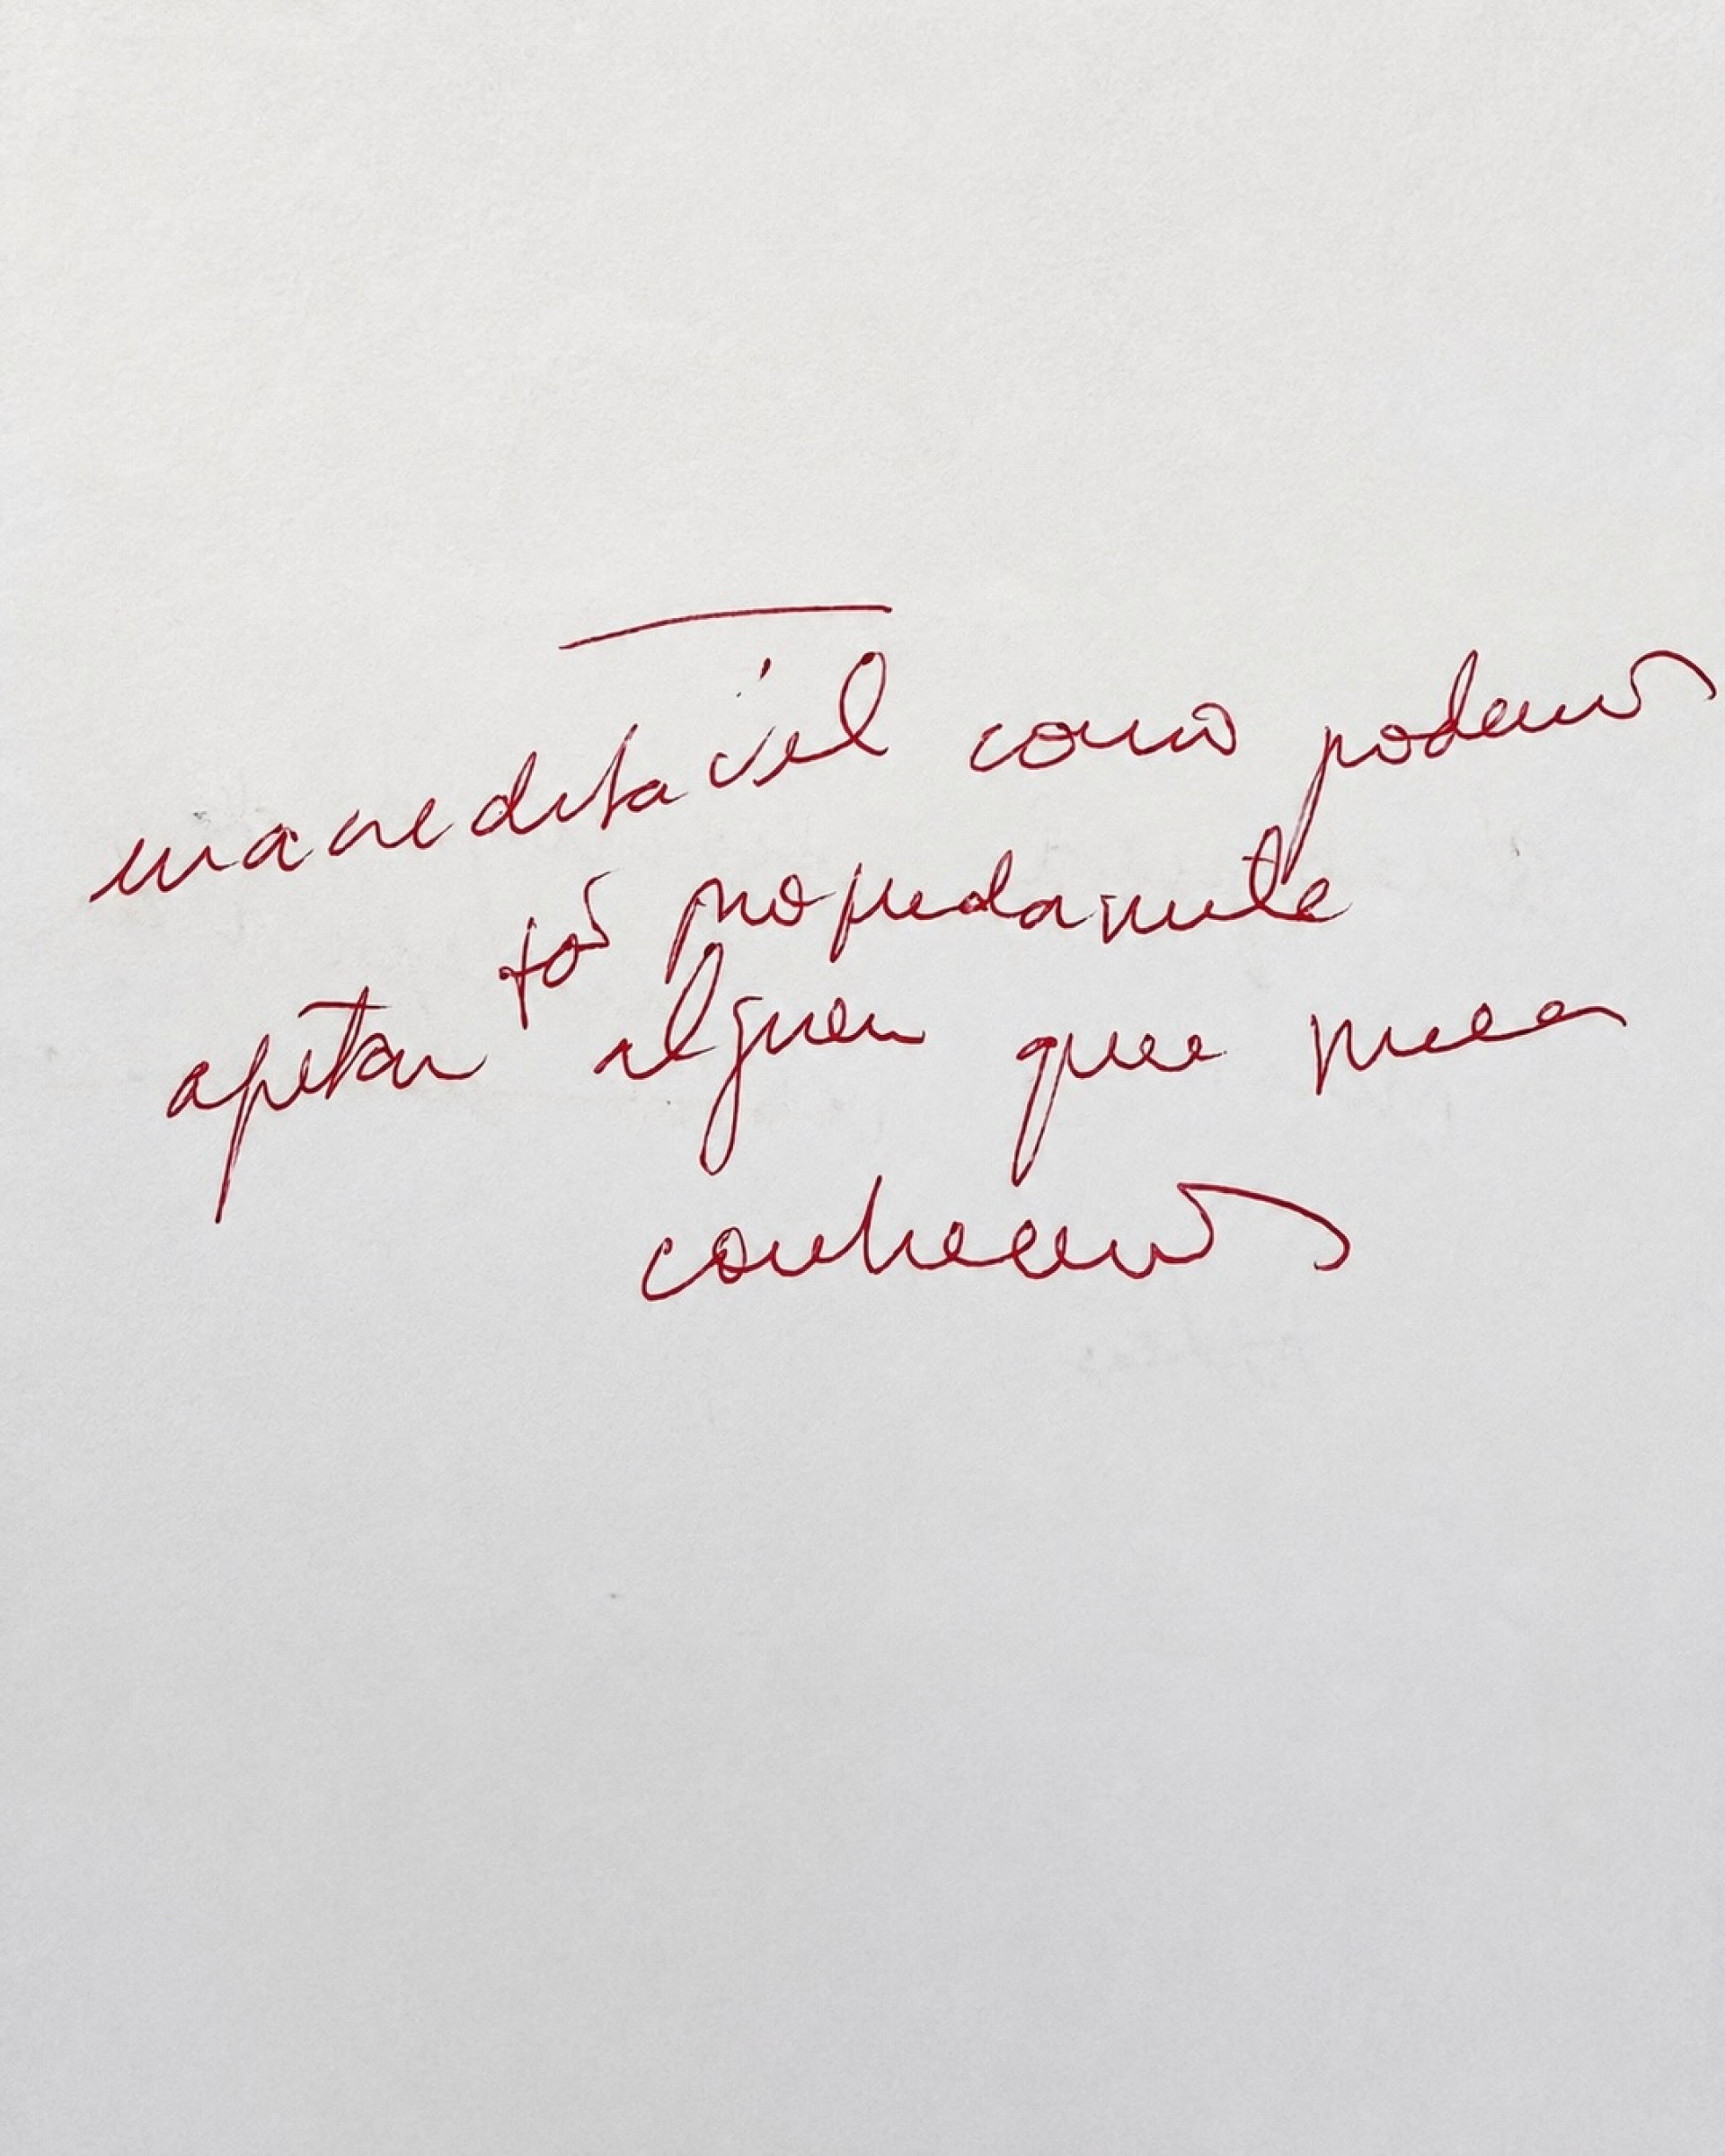 inacreditável como podemos
tão profundamente
afetar alguém que nunca
conhecemos